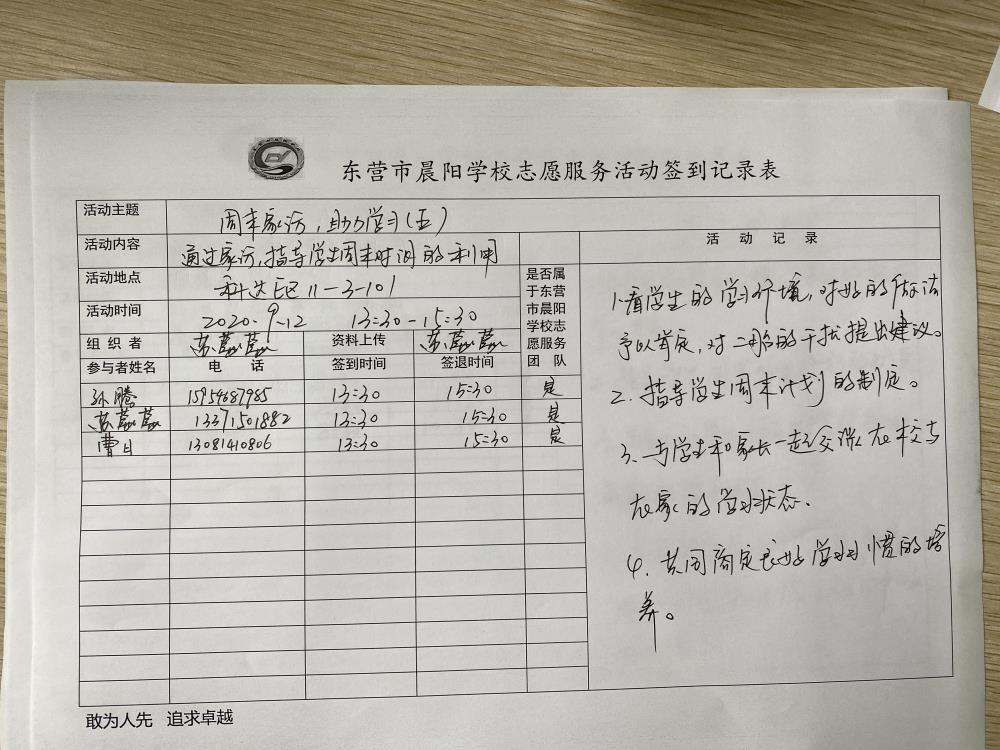 东营市晨阳学校志愿服务活动签到记录表
活动主题 周末家访,助力学习(五)
活动内容 通过家访,指导学生周末时间的利用
活动地点 科达E区11-3-101
活动时间 2020.9.12 13:30-15:30
组织者 苏磊磊 资料上传 苏磊磊
参与者姓名 电话 签到时间 签退时间
是否属
于东营
市晨阳
学校志
愿服务
团队
孙腾 15954687985 13:30 15:30 是
苏磊磊 13371501882 13:30 15:30 是
曹日 13081410806 13:30 15:30 是
活动记录
1.看学生的学习环境,对好的做法
予以肯定,对二胎的干扰提出建议。
2.指导学生周末计划的制定。
3.与学生和家长一起交谈在校与
在家的学习状态.
4.共同商定良好学习习惯的培
养。
敢为人先 追求卓越